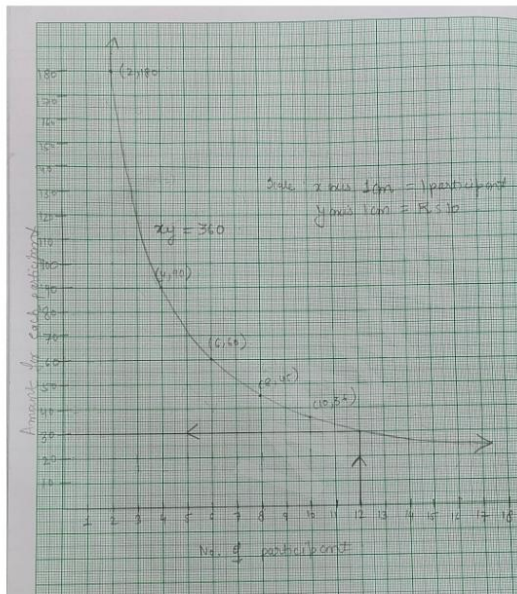 (2,180
180
170
160
150
140
130
120
110
100
90
80
70
60
50
40
30
20
10
Scale x axis 1cm = 1 participant
y axis 1cm = Rs 10
xy = 360
(4,90)
(6,60)
(8,45)
(10,36)
Amount for each participant
1 2 3 4 5 6 7 8 9 10 11 12 13 14 15 16 17 18
No. of participant